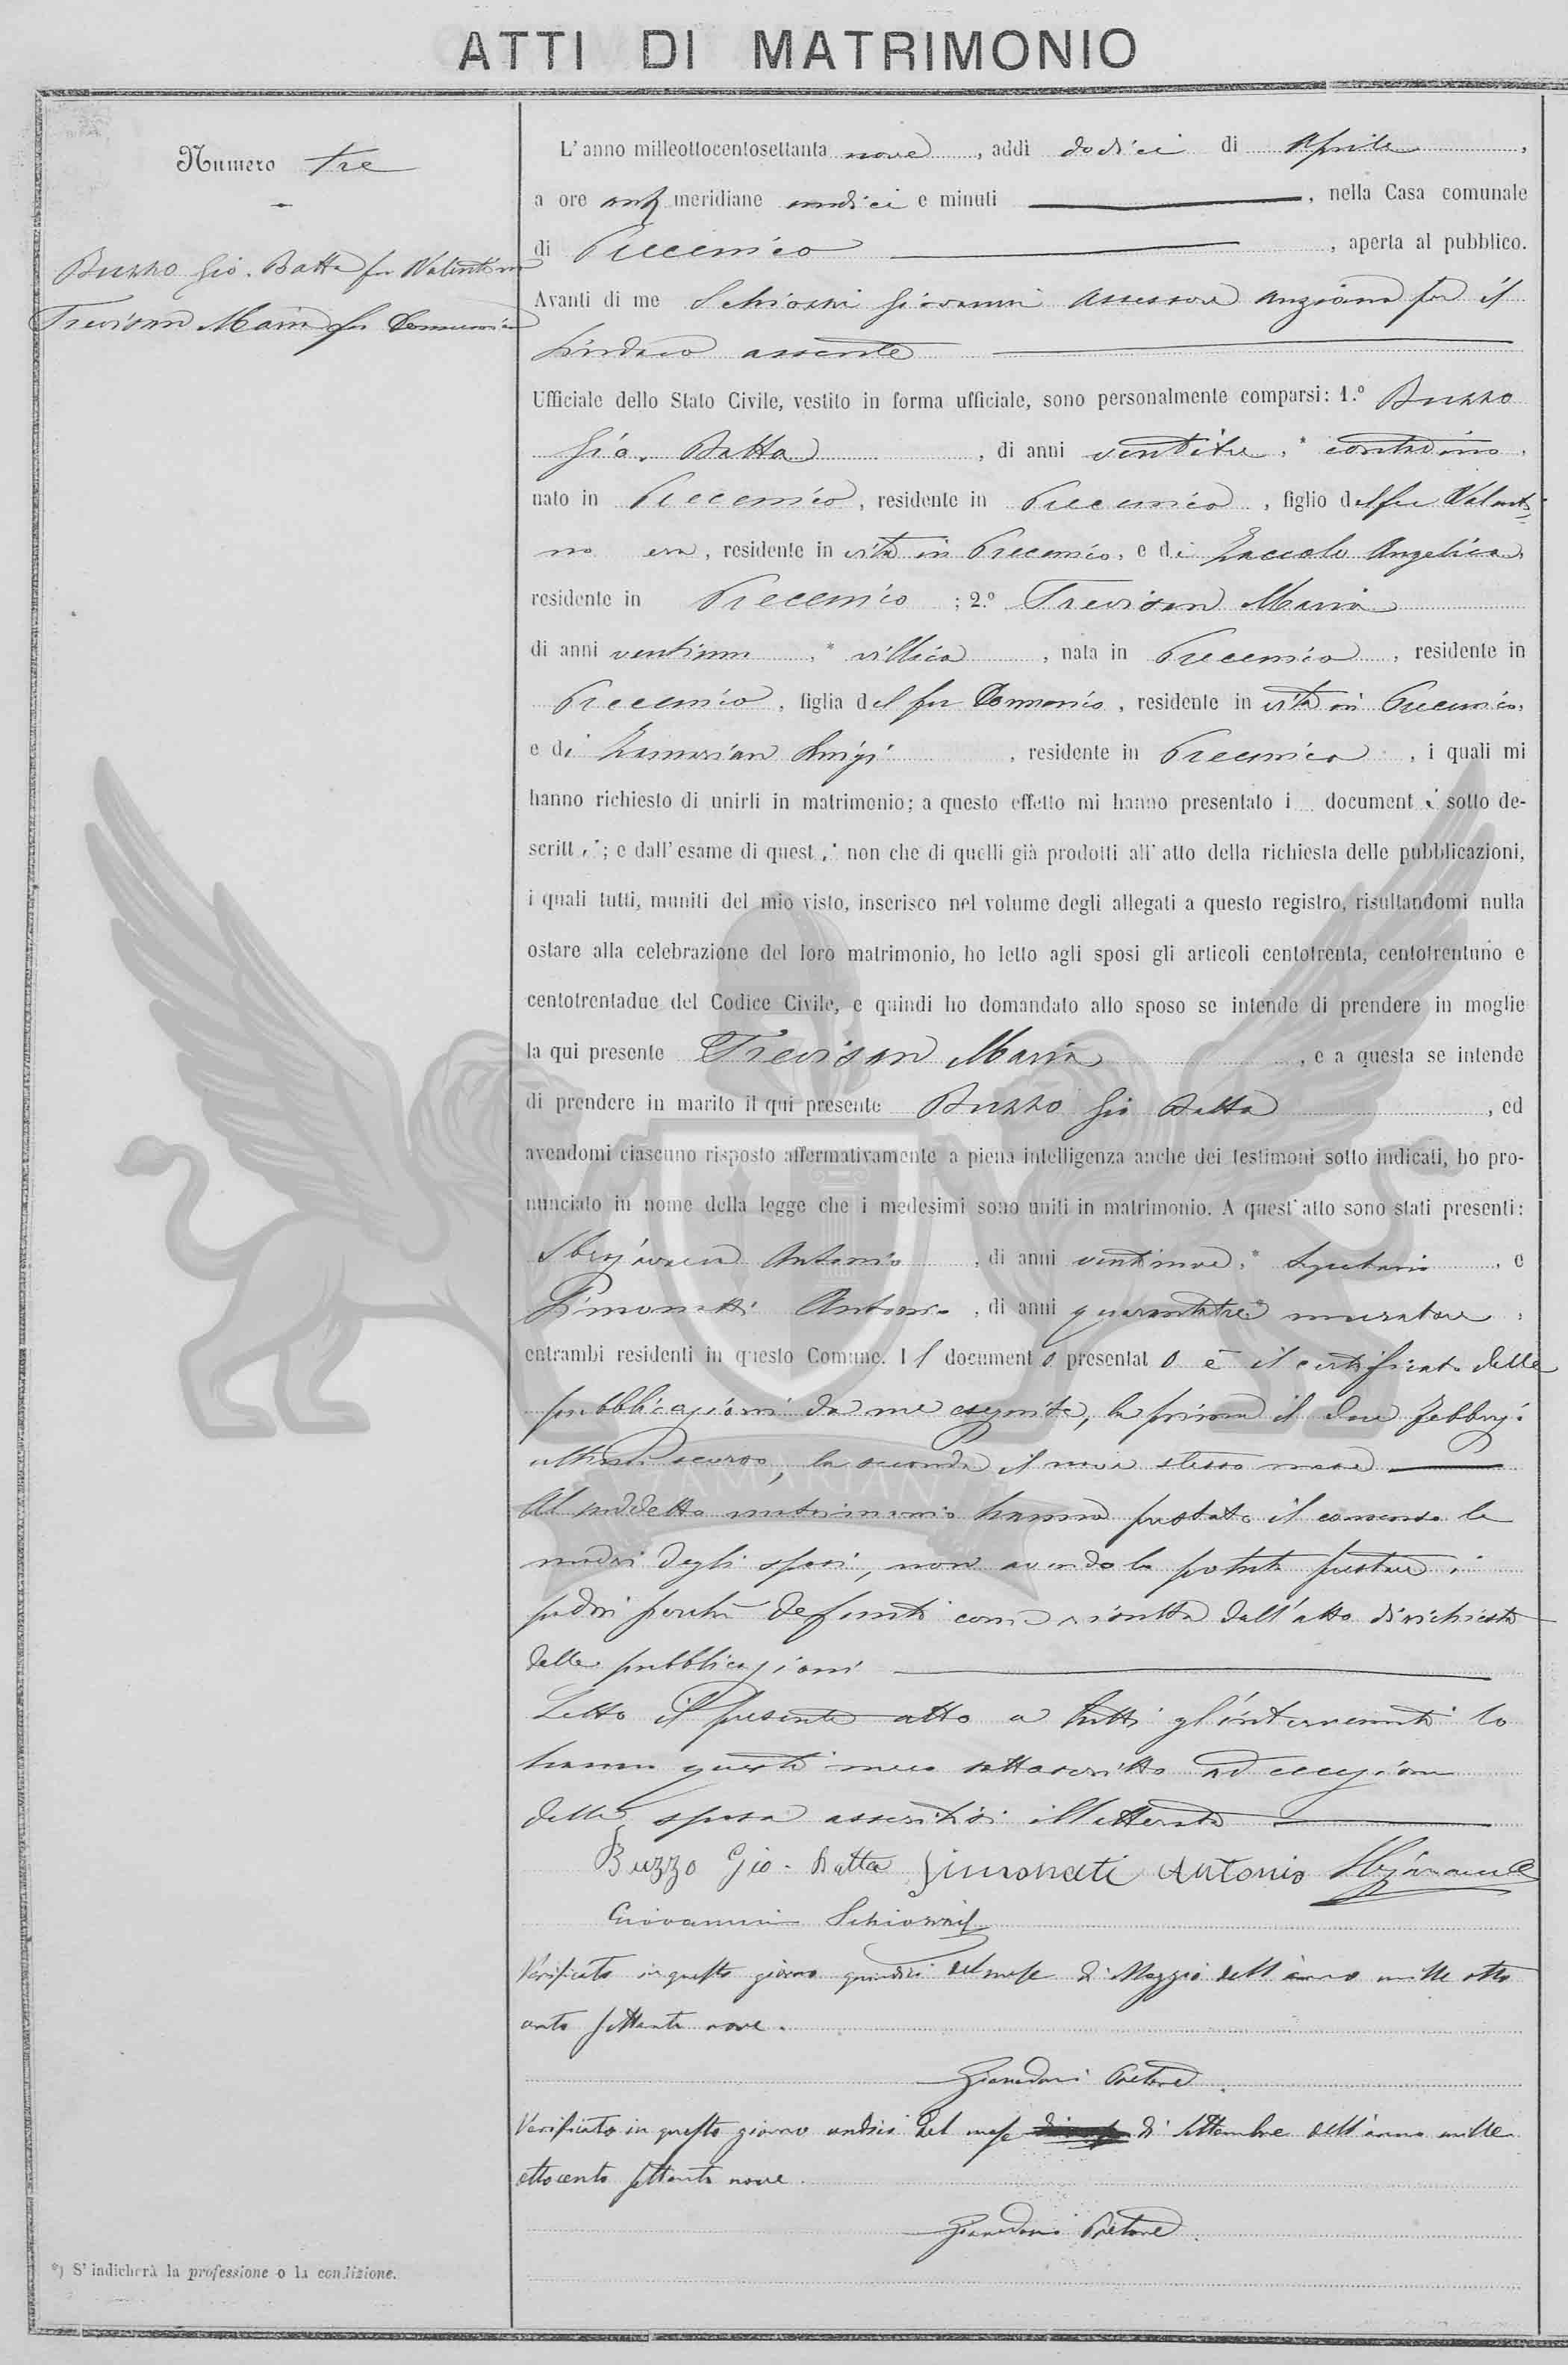 ATTI DI MATRIMONIO
Numero tre
Buzzo Gio. Batta fu Valentino
Trevisan Maria fu Domenico
L'anno milleottocentosettanta nove, addi dodici di Aprile,
a ore ant meridiane undici e minuti, nella Casa comunale
di Precenico, aperta al pubblico.
Avanti di me Schiozzi Giovanni Assessore Anziano per il
Sindaco assente
Ufficiale dello Stato Civile, vestito in forma ufficiale, sono personalmente comparsi: 1.° Buzzo
Gio. Batta, di anni ventitre, * contadino,
nato in Precenico, residente in Precenico, figlio del fu Valenti-
no era, residente in vita in Precenico, e di Zaccolo Angelica,
residente in Precenico; 2.° Trevisan Maria
di anni ventiuno, * villica, nata in Precenico, residente in
Precenico, figlia del fu Domenico, residente in vita in Precenico,
e di Luigi, residente in Precenico, i quali mi
hanno richiesto di unirli in matrimonio; a questo effetto mi hanno presentato i documenti sotto de-
scritti; e dall'esame di questi non che di quelli già prodotti all'atto della richiesta delle pubblicazioni,
i quali tutti, muniti del mio visto, inserisco nel volume degli allegati a questo registro, risultandomi nulla
ostare alla celebrazione del loro matrimonio, ho letto agli sposi gli articoli centotrenta, centotrentuno e
centotrentadue del Codice Civile, e quindi ho domandato allo sposo se intende di prendere in moglie
la qui presente Trevisan Maria, e a questa se intende
di prendere in marito il qui presente Buzzo Gio Batta, ed
avendomi ciascuno risposto affermativamente a piena intelligenza anche dei testimoni sotto indicati, ho pro-
nunciato in nome della legge che i medesimi sono uniti in matrimonio. A quest'atto sono stati presenti:
Antonio, di anni ventinove, * Segretario, e
Simonati Antonio, di anni quarantatre * muratore,
entrambi residenti in questo Comune. Il documento presentato è il certificato delle
pubblicazioni da me eseguite, la prima il due Febbraj:
ultimo scorso, la seconda il nove stesso mese
Al suddetto matrimonio hanno prestato il consenso le
madri degli sposi, non avendolo potuto prestare i
padri perché defunti come risulta dall'atto di richiesta
delle pubblicazioni
Letto il presente atto a tutti gl'intervenuti lo
hanno questi meco sottoscritto ad eccezione
della sposa asseritasi illetterata
Buzzo Gio. Batta Simonati Antonio
Giovanni Schiozzi
Verificato in questo giorno quindici del mese di Maggio dell'anno mille otto
cento settanta nove.
Pretore
Verificato in questo giorno undici del mese di Settembre dell'anno mille
ottocento settanta nove.
Pretore
*) S'indicherà la professione o la condizione.